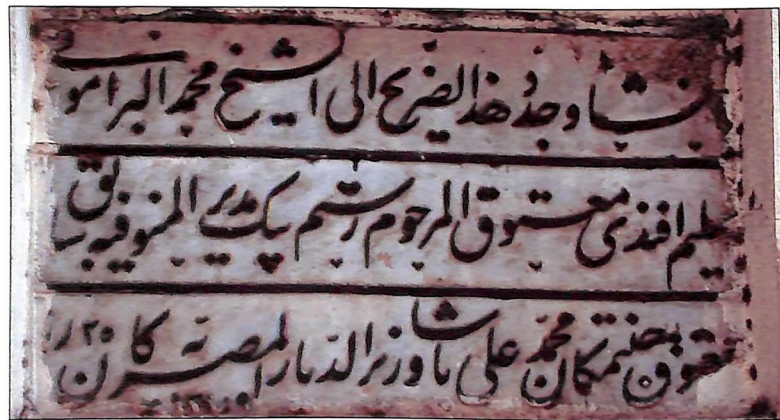 انشا وجدد هذا الضريح الى الشيخ محمد البراموني
سليم افندي معتوق المرحوم رستم بك مدير المنوفية سابق
معتوق جنتمكان محمد علي باشا وزير الديار المصرية كان ٢٠ را